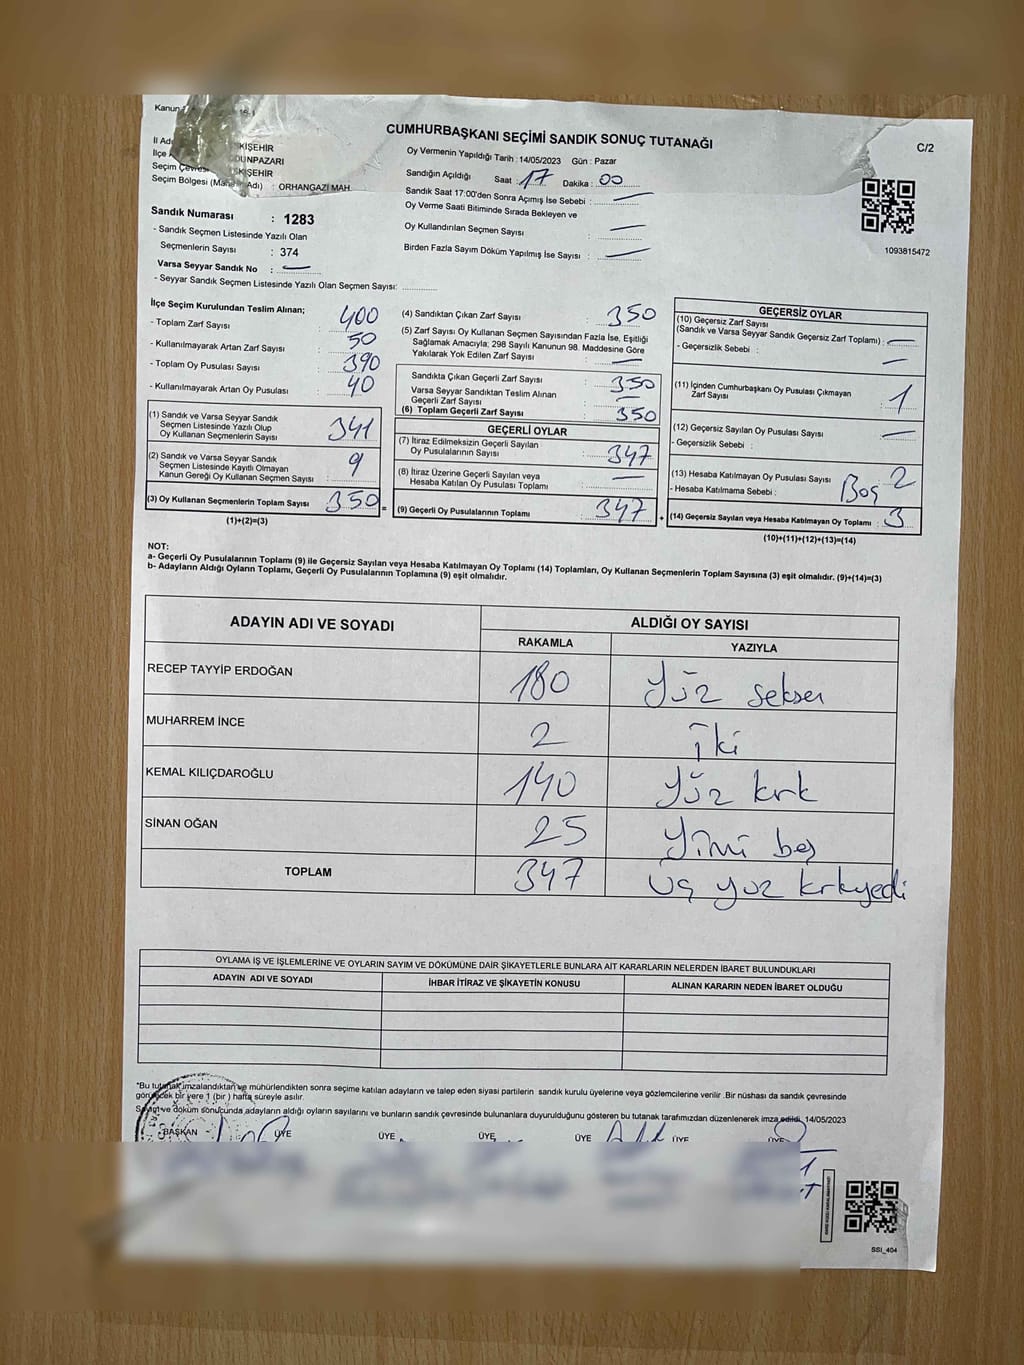 Kanun
CUMHURBAŞKANI SEÇİMİ SANDIK SONUÇ TUTANAĞI
C/2
İl Adı KİŞEHİR
İlçe DUNPAZARI
Seçim Çevresi KİŞEHİR
Seçim Bölgesi (Mahalle Adı) : ORHANGAZİ MAH.
Oy Vermenin Yapıldığı Tarih : 14/05/2023 Gün : Pazar
Sandığın Açıldığı Saat : 17 Dakika : 00
Sandık Saat 17:00'den Sonra Açımış İse Sebebi : —
Oy Verme Saati Bitiminde Sırada Bekleyen ve
Oy Kullandırılan Seçmen Sayısı : —
Birden Fazla Sayım Döküm Yapılmış İse Sayısı : —
1093815472
Sandık Numarası : 1283
- Sandık Seçmen Listesinde Yazılı Olan
Seçmenlerin Sayısı : 374
Varsa Seyyar Sandık No : —
- Seyyar Sandık Seçmen Listesinde Yazılı Olan Seçmen Sayısı:
İlçe Seçim Kurulundan Teslim Alınan;
- Toplam Zarf Sayısı : 400
- Kullanılmayarak Artan Zarf Sayısı : 50
- Toplam Oy Pusulası Sayısı : 390
- Kullanılmayarak Artan Oy Pusulası : 40
(1) Sandık ve Varsa Seyyar Sandık
Seçmen Listesinde Yazılı Olup
Oy Kullanan Seçmenlerin Sayısı : 341
(2) Sandık ve Varsa Seyyar Sandık
Seçmen Listesinde Kayıtlı Olmayan
Kanun Gereği Oy Kullanan Seçmen Sayısı : 9
(3) Oy Kullanan Seçmenlerin Toplam Sayısı : 350
(1)+(2)=(3)
(4) Sandıktan Çıkan Zarf Sayısı : 350
(5) Zarf Sayısı Oy Kullanan Seçmen Sayısından Fazla İse, Eşitliği
Sağlamak Amacıyla; 298 Sayılı Kanunun 98. Maddesine Göre
Yakılarak Yok Edilen Zarf Sayısı : —
Sandıkta Çıkan Geçerli Zarf Sayısı : 350
Varsa Seyyar Sandıktan Teslim Alınan
Geçerli Zarf Sayısı : —
(6) Toplam Geçerli Zarf Sayısı : 350
GEÇERLİ OYLAR
(7) İtiraz Edilmeksizin Geçerli Sayılan
Oy Pusulalarının Sayısı : 347
(8) İtiraz Üzerine Geçerli Sayılan veya
Hesaba Katılan Oy Pusulası Toplamı : —
(9) Geçerli Oy Pusulalarının Toplamı : 347
GEÇERSİZ OYLAR
(10) Geçersiz Zarf Sayısı
(Sandık ve Varsa Seyyar Sandık Geçersiz Zarf Toplamı) : —
- Geçersizlik Sebebi : —
(11) İçinden Cumhurbaşkanı Oy Pusulası Çıkmayan
Zarf Sayısı : 1
(12) Geçersiz Sayılan Oy Pusulası Sayısı : —
- Geçersizlik Sebebi :
(13) Hesaba Katılmayan Oy Pusulası Sayısı : 2
- Hesaba Katılmama Sebebi : Boş
(14) Geçersiz Sayılan veya Hesaba Katılmayan Oy Toplamı : 3
(10)+(11)+(12)+(13)=(14)
NOT:
a- Geçerli Oy Pusulalarının Toplamı (9) ile Geçersiz Sayılan veya Hesaba Katılmayan Oy Toplamı (14) Toplamları, Oy Kullanan Seçmenlerin Toplam Sayısına (3) eşit olmalıdır. (9)+(14)=(3)
b- Adayların Aldığı Oyların Toplamı, Geçerli Oy Pusulalarının Toplamına (9) eşit olmalıdır.
ADAYIN ADI VE SOYADI ALDIĞI OY SAYISI
RAKAMLA YAZIYLA
RECEP TAYYİP ERDOĞAN 180 Yüz seksen
MUHARREM İNCE 2 iki
KEMAL KILIÇDAROĞLU 140 Yüz kırk
SİNAN OĞAN 25 Yirmi beş
TOPLAM 347 Üç yüz kırkyedi
OYLAMA İŞ VE İŞLEMLERİNE VE OYLARIN SAYIM VE DÖKÜMÜNE DAİR ŞİKAYETLERLE BUNLARA AİT KARARLARIN NELERDEN İBARET BULUNDUKLARI
ADAYIN ADI VE SOYADI İHBAR İTİRAZ VE ŞİKAYETİN KONUSU ALINAN KARARIN NEDEN İBARET OLDUĞU
*Bu tutanak imzalandıktan ve mühürlendikten sonra seçime katılan adayların ve talep eden siyasi partilerin sandık kurulu üyelerine veya gözlemcilerine verilir .Bir nüshası da sandık çevresinde
görülecek bir yere 1 (bir ) hafta süreyle asılır.
Sayım ve döküm sonucunda adayların aldığı oyların sayılarını ve bunların sandık çevresinde bulunanlara duyurulduğunu gösteren bu tutanak tarafımızdan düzenlenerek imza edildi. 14/05/2023
BAŞKAN ÜYE ÜYE ÜYE ÜYE ÜYE ÜYE
SSI_404